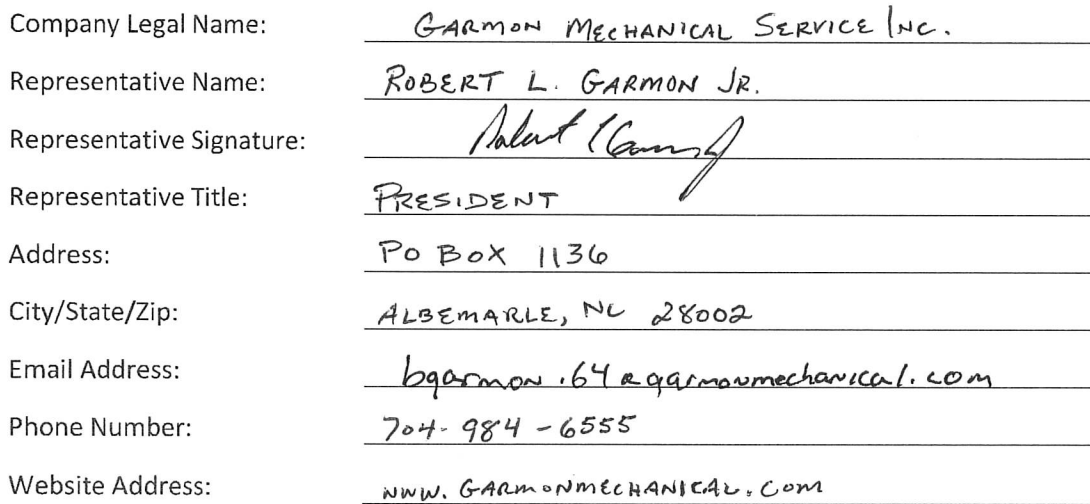 Company Legal Name: GARMON MECHANICAL SERVICE INC.
Representative Name: ROBERT L. GARMON JR.
Representative Signature:
Representative Title: PRESIDENT
Address: PO BOX 1136
City/State/Zip: ALBEMARLE, NC 28002
Email Address: bgarmon.64@garmonmechanical.com
Phone Number: 704-984-6555
Website Address: www.GARMONMECHANICAL.COM